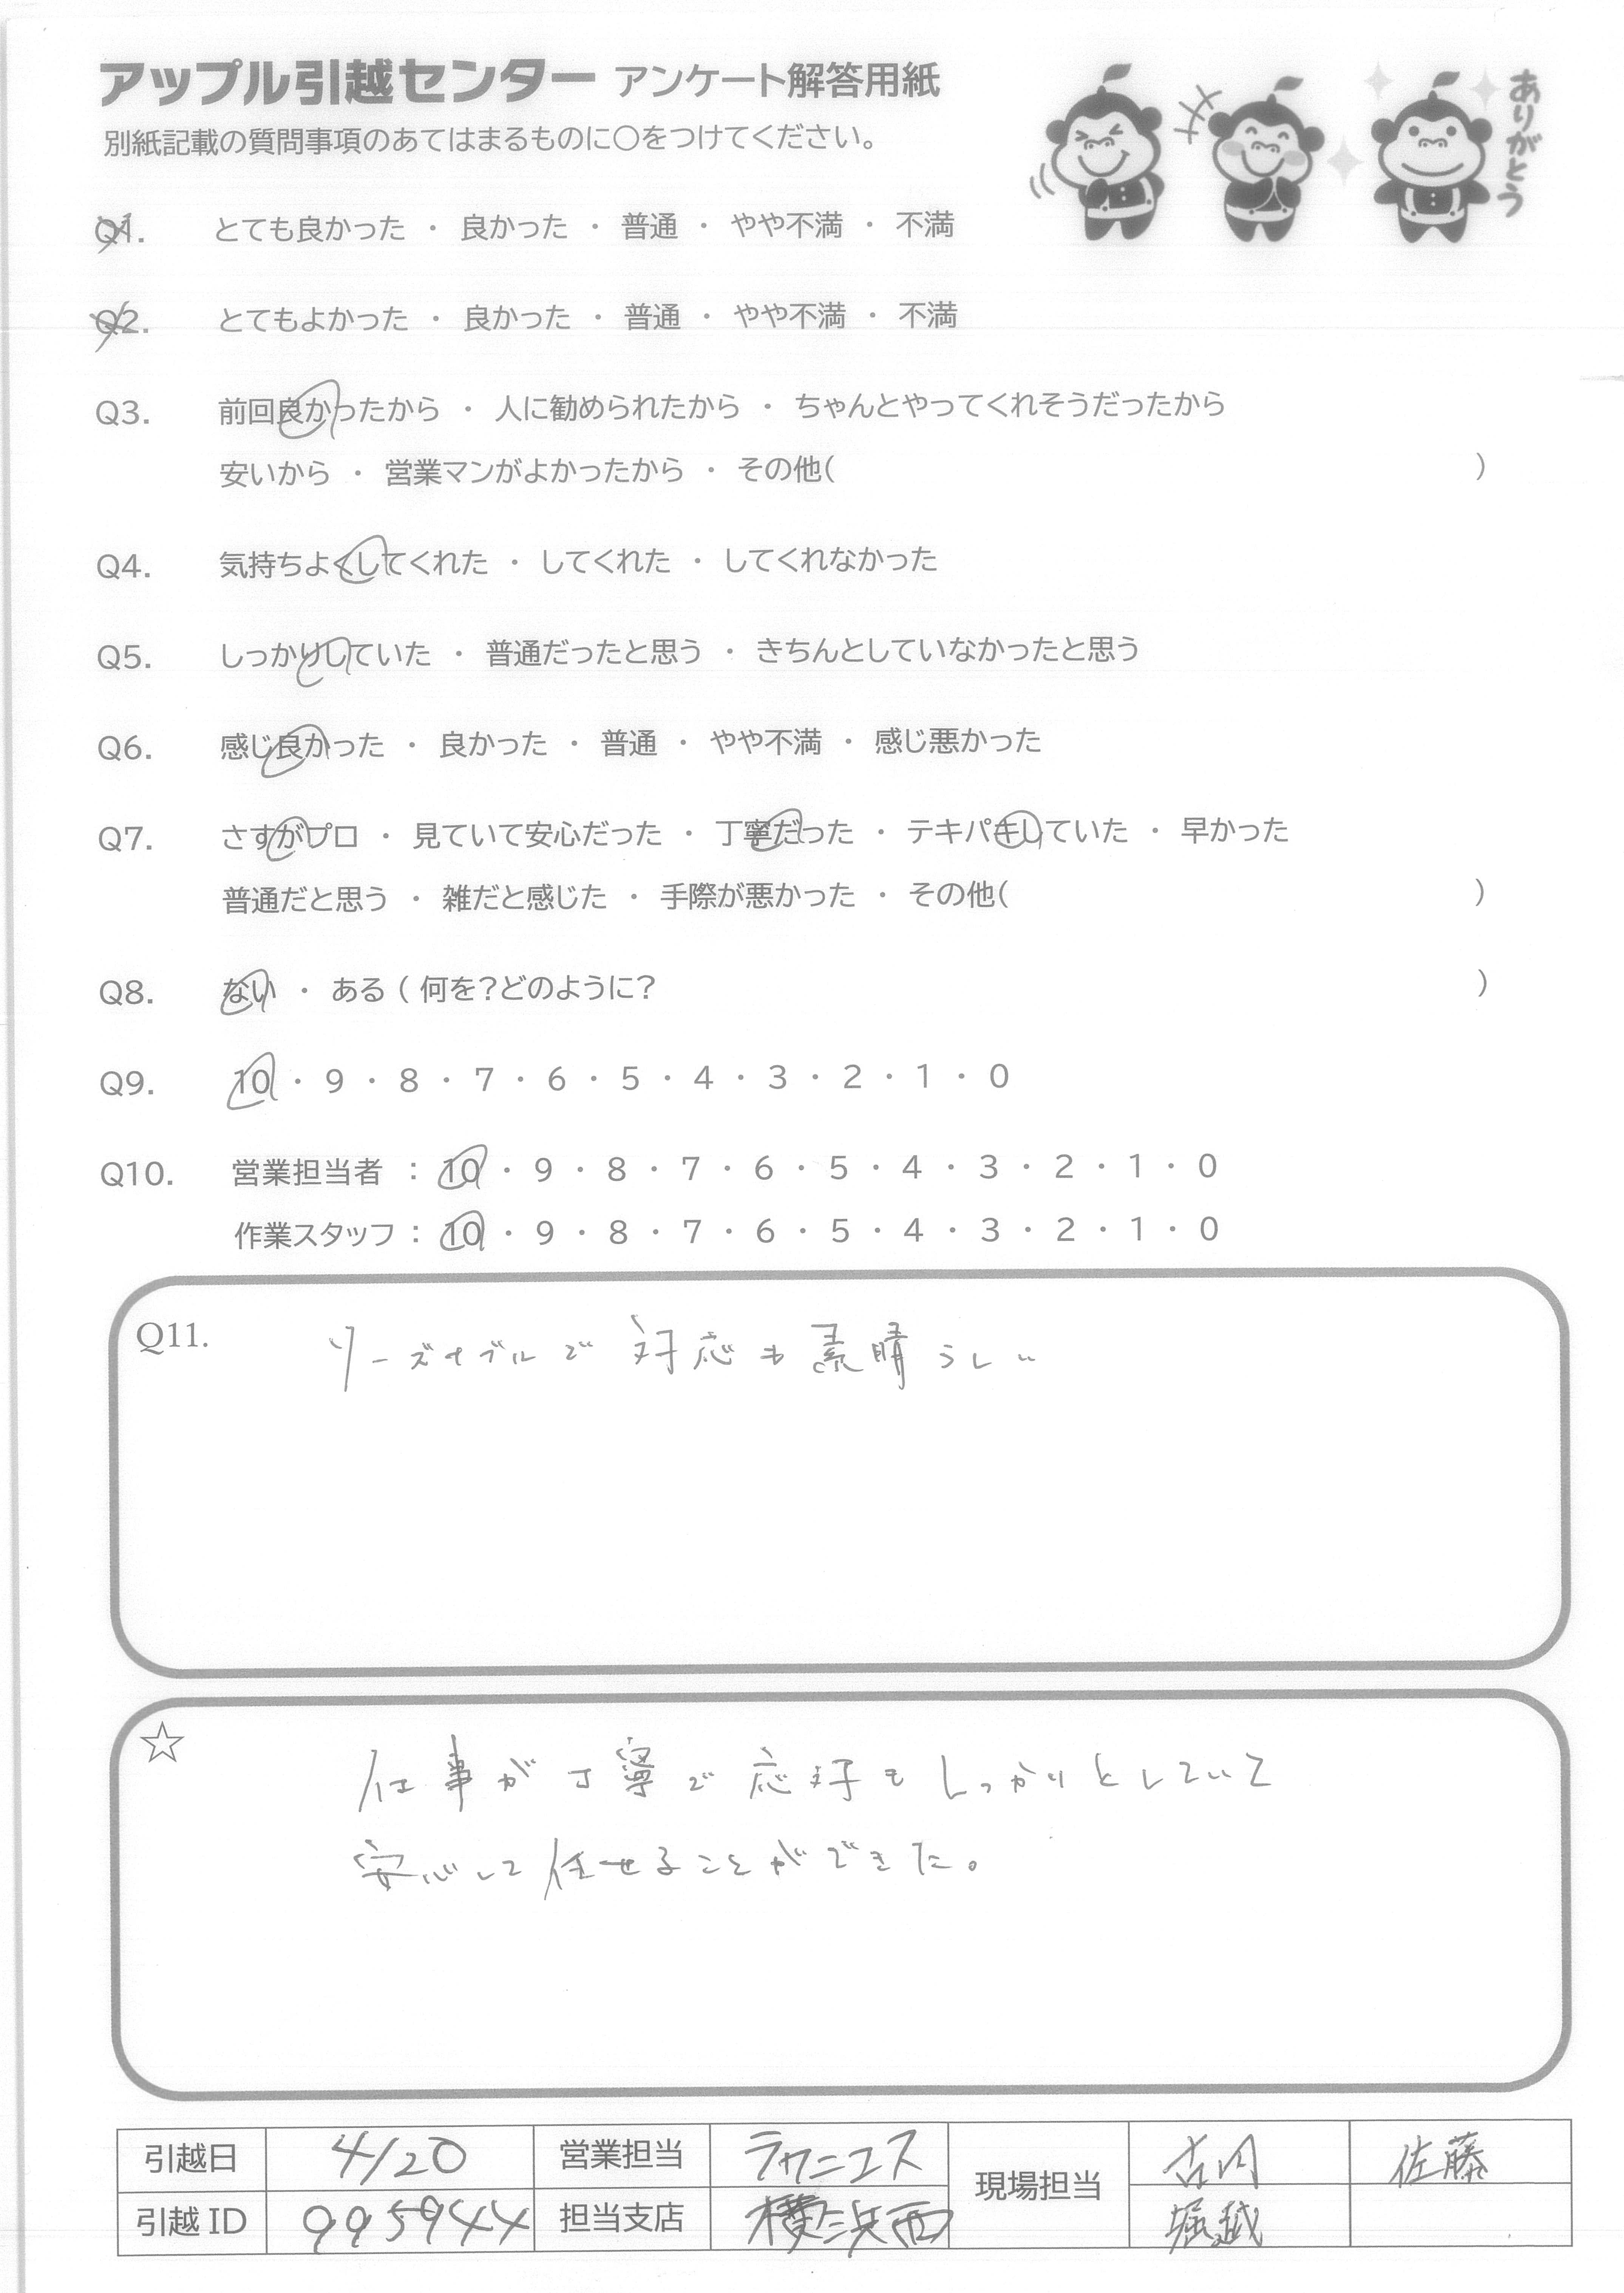 アップル引越センター アンケート解答用紙
ありがとう
別紙記載の質問事項のあてはまるものに〇をつけてください。
Q1. とても良かった ・ 良かった ・ 普通 ・ やや不満 ・ 不満
Q2. とてもよかった ・ 良かった ・ 普通 ・ やや不満 ・ 不満
Q3. 前回良かったから ・ 人に勧められたから ・ ちゃんとやってくれそうだったから
安いから ・ 営業マンがよかったから ・ その他( )
Q4. 気持ちよくしてくれた ・ してくれた ・ してくれなかった
Q5. しっかりしていた ・ 普通だったと思う ・ きちんとしていなかったと思う
Q6. 感じ良かった ・ 良かった ・ 普通 ・ やや不満 ・ 感じ悪かった
Q7. さすがプロ ・ 見ていて安心だった ・ 丁寧だった ・ テキパキしていた ・ 早かった
普通だと思う ・ 雑だと感じた ・ 手際が悪かった ・ その他( )
Q8. ない ・ ある ( 何を?どのように? )
Q9. 10 ・ 9 ・ 8 ・ 7 ・ 6 ・ 5 ・ 4 ・ 3 ・ 2 ・ 1 ・ 0
Q10. 営業担当者 : 10 ・ 9 ・ 8 ・ 7 ・ 6 ・ 5 ・ 4 ・ 3 ・ 2 ・ 1 ・ 0
作業スタッフ : 10 ・ 9 ・ 8 ・ 7 ・ 6 ・ 5 ・ 4 ・ 3 ・ 2 ・ 1 ・ 0
Q11. リーズナブルで対応も素晴らしい
☆ 仕事が丁寧で応対もしっかりとしていて
安心して任せることができた。
引越日 4/20 営業担当 現場担当 佐藤
引越ID 995944 担当支店 横浜西 堀越